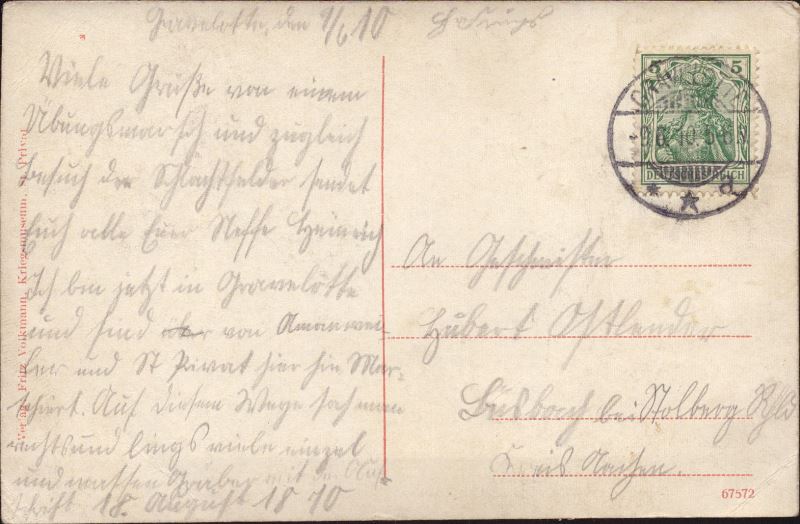 Gravelotte, den 9/6 10
Viele Grüße von einem
Übungsmarsch und zugleich
besuch der Schlachtfelder sendet
Euch alle Euer Neffe Heinrich
Ich bin jetzt in Gravelotte
und sind über von Amanwei-
ler und St Privat hier hin Mar-
schiert. Auf diesem Wege sah man
rechts und lings viele einzel
und massen Gräber mit der Auf-
schrift 18. August 1870
An Geschwister
Hubert Ostlender
Büsbach bei Stolberg Rhld
Kreis Aachen.
5 5
DEUTSCHES REICH
Verlag Fritz Volkmann, Kriegsmuseum, St. Privat
67572